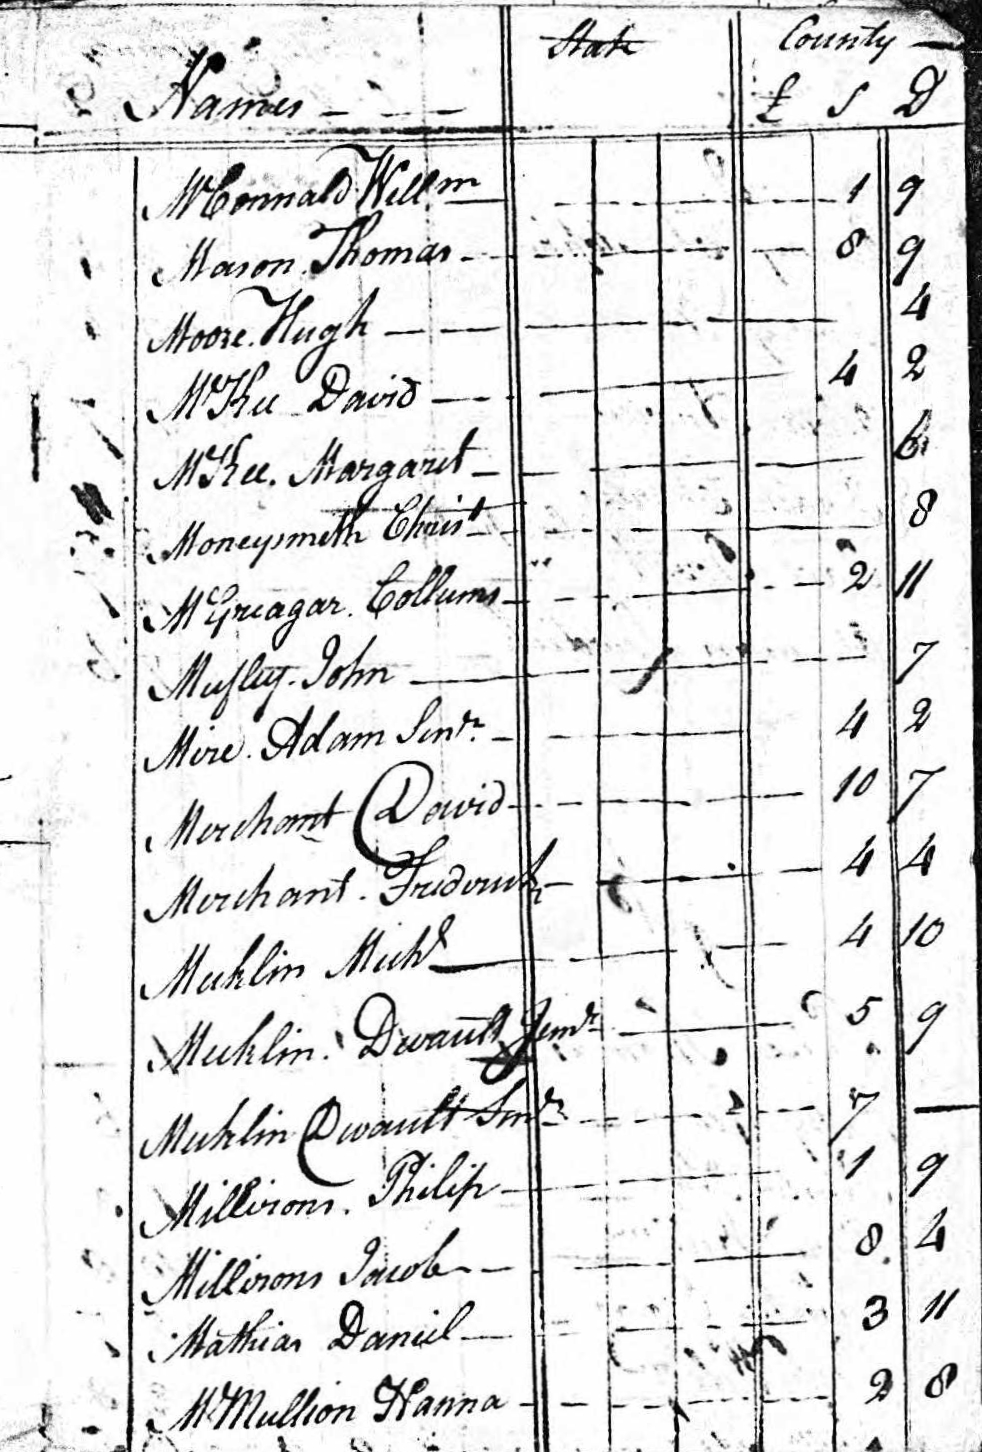 Names - - — State County —
£ S D
McConnald Willm — 1 9
Mason Thomas - 8 9
Moore. Hugh - - 4
McKee David — 4 2
McKee. Margaret - 6
Moneysmith Christ - 8
McGreagar. Collums - 2 11
John — 7
Mire. Adam Senr. - 4 2
Merchant David - 10 7
Merchant. Frederick - 4 4
Mecklin Michl — 4 10
Mecklin. Dewault Junr - 5 9
Mecklin Dewault Senr - 7 —
Millirons. Philip - 1 9
Millirons Jacob - 8 4
Mathias Daniel — 3 11
McMullion Hanna - 2 8